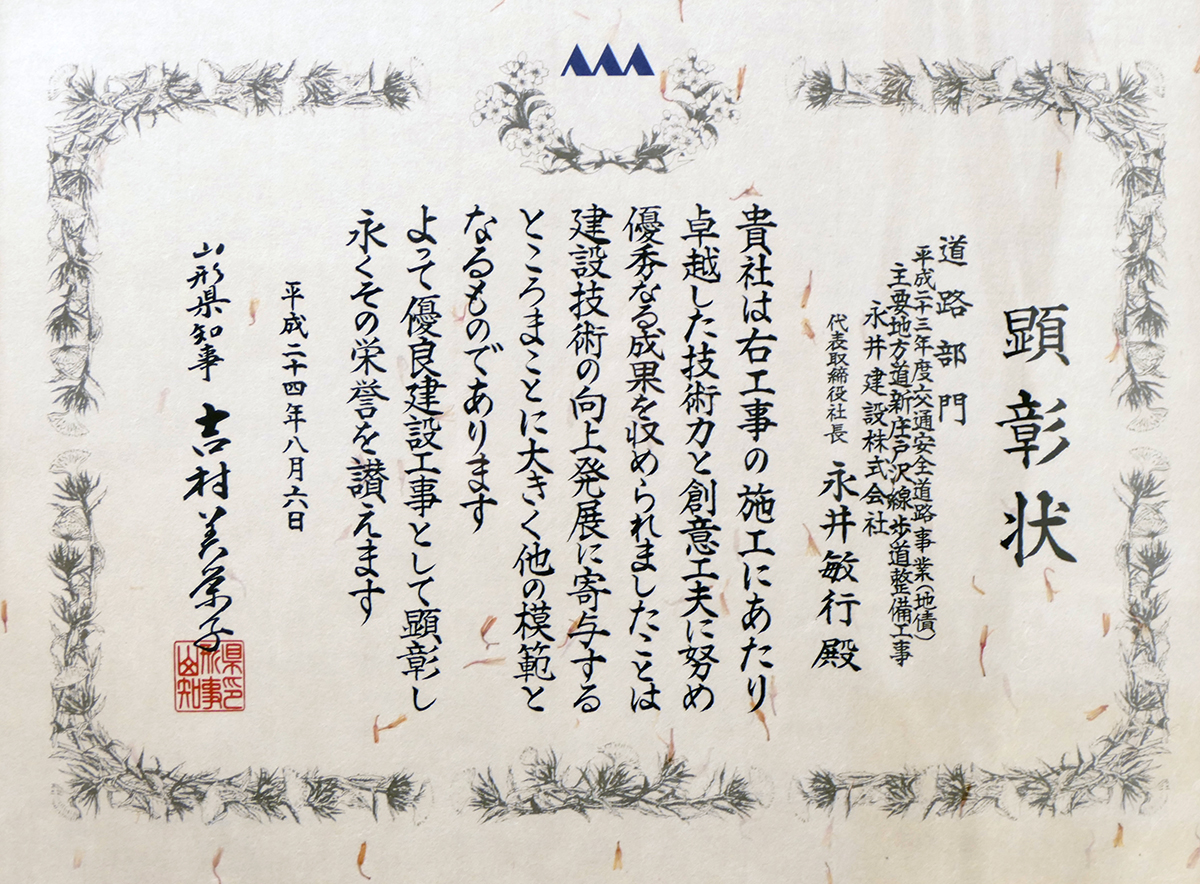 顕彰状
道路部門
平成二十三年度交通安全道路事業(地債)
主要地方道新庄戸沢線歩道整備工事
永井建設株式会社
代表取締役社長 永井敏行殿
貴社は右工事の施工にあたり
卓越した技術力と創意工夫に努め
優秀なる成果を収められましたことは
建設技術の向上発展に寄与する
ところまことに大きく他の模範と
なるものであります
よって優良建設工事として顕彰し
永くその栄誉を讃えます
平成二十四年八月六日
山形県知事 吉村美栄子
県印
形事
山知